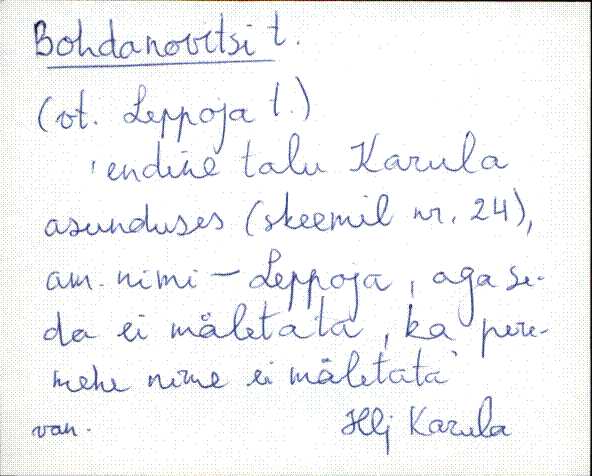 Bohdanovitsi t.
(vt. Leppoja t.)
'endine talu Karula
asunduses (skeemil nr. 24),
am. nimi - Leppoja, aga se-
da ei mäletata, ka pere-
mehe nime ei mäletata
van. Hlj Karula